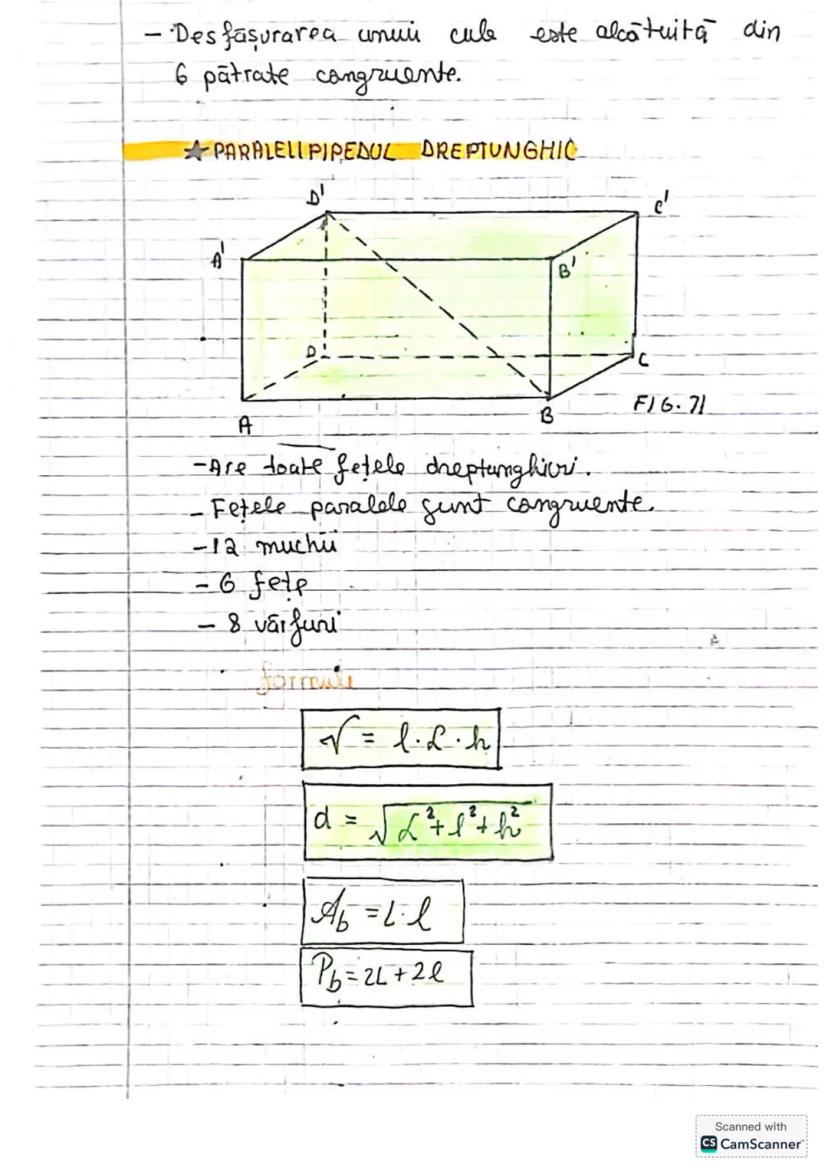 - Desfășurarea unui cub este alcătuită din
6 pătrate congruente.
★ PARALELIPIPEDUL DREPTUNGHIC
D'
C'
A'
B'
D
C
A
B
FIG. 71
- Are toate fețele dreptunghiuri.
- Fețele paralele sunt congruente.
- 12 muchii
- 6 fețe
- 8 vârfuri
formule
V = l · L · h
d = √L²+l²+h²
Ab = L · l
Pb = 2L + 2l
Scanned with
CS CamScanner